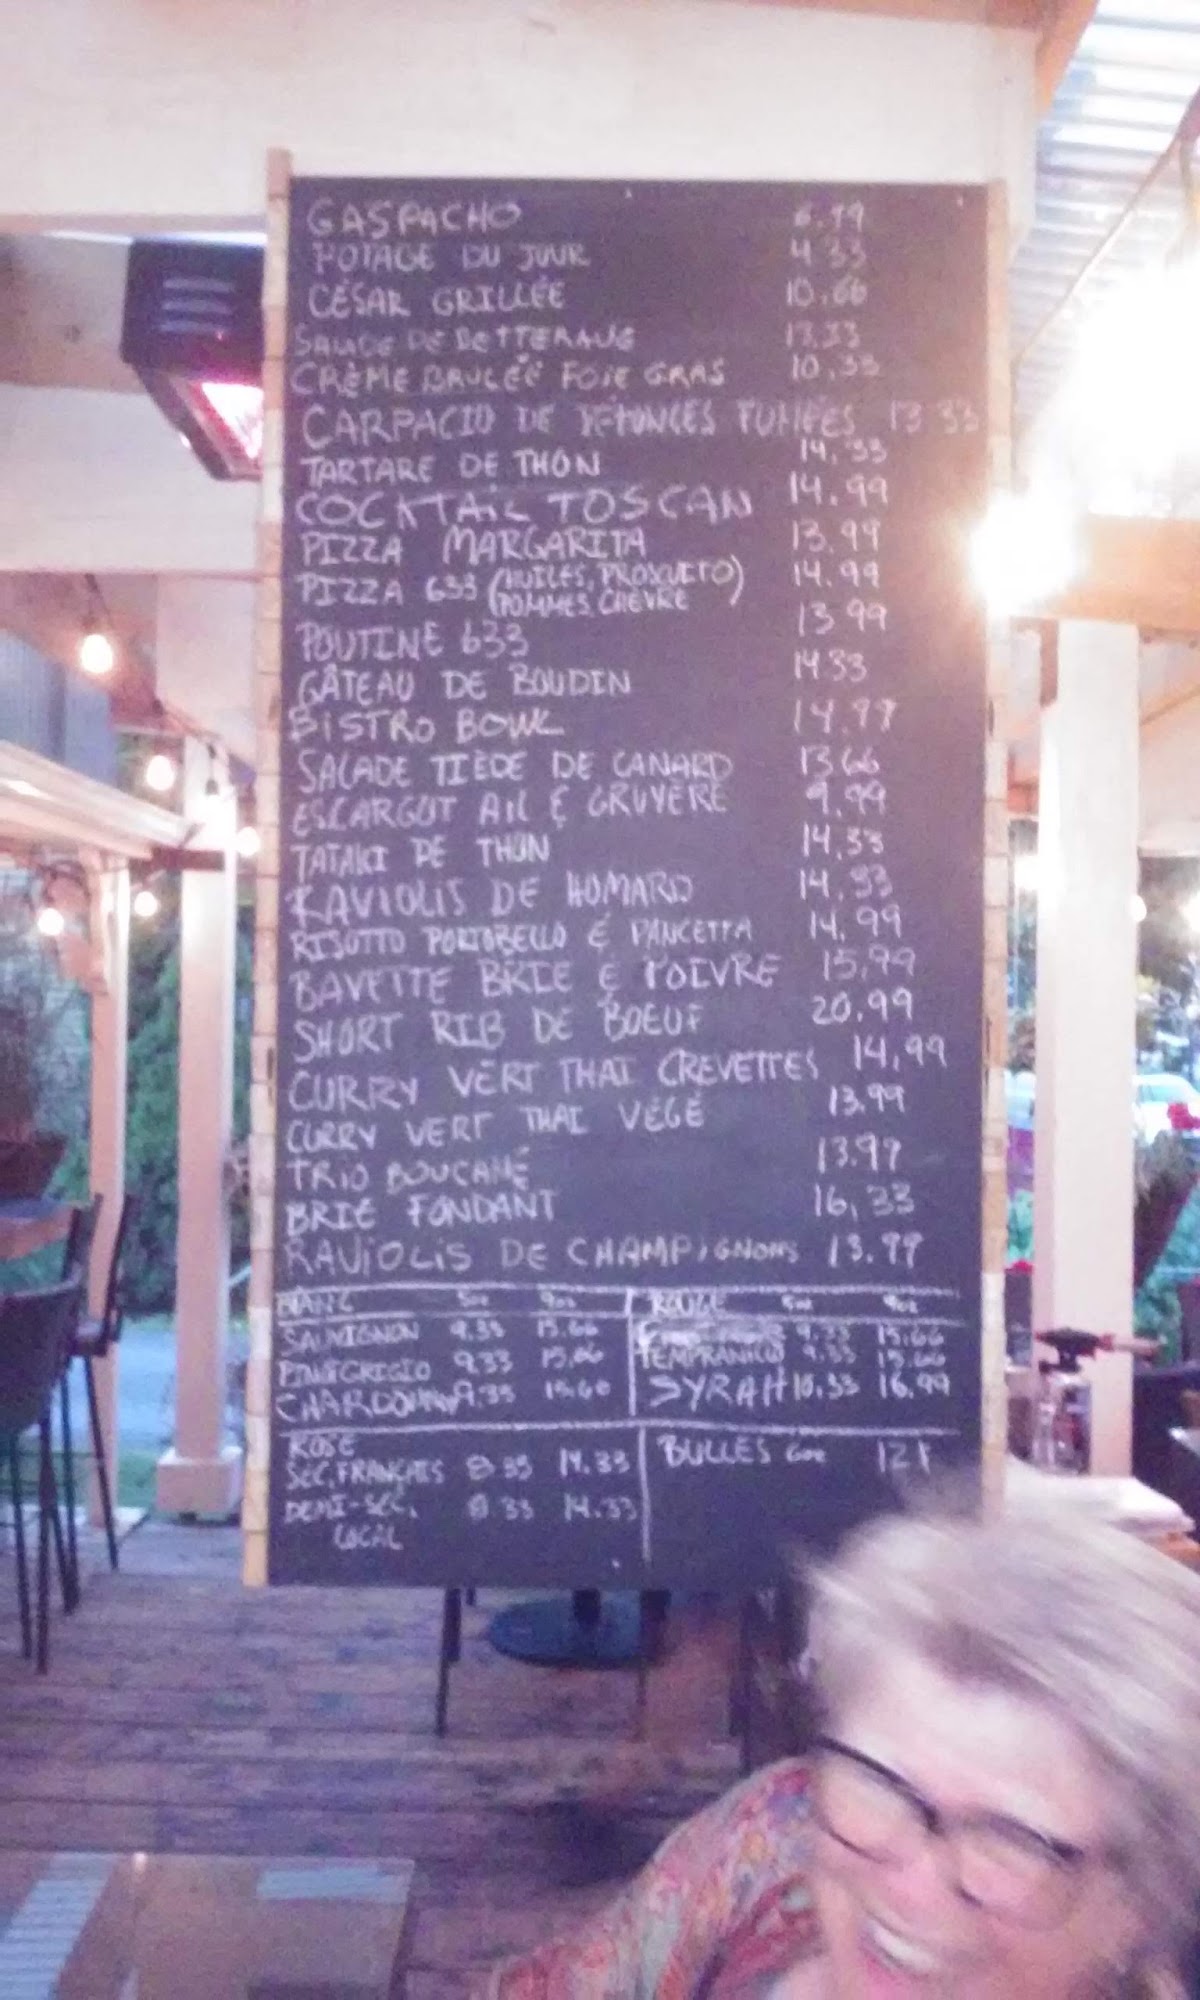 GASPACHO 6.99
POTAGE DU JOUR 4.33
CÉSAR GRILLÉE 10.66
SALADE DE BETTERAVE 13.33
CRÈME BRULÉE FOIE GRAS 10.33
CARPACIO DE PÉTONCLES FUMÉES 13.33
TARTARE DE THON 14.33
COCKTAIL TOSCAN 14.99
PIZZA MARGARITA 13.99
PIZZA 633 (HUILES, PROSCUITO) 14.99
POMMES, CHÈVRE
POUTINE 633 13.99
GÂTEAU DE BOUDIN 14.33
BISTRO BOWL 14.99
SALADE TIÈDE DE CANARD 13.66
ESCARGOT AIL & GRUYÈRE 9.99
TATAKI DE THON 14.33
RAVIOLIS DE HOMARD 14.33
RISOTTO PORTOBELLO & PANCETTA 14.99
BAVETTE BRIE & POIVRE 15.99
SHORT RIB DE BOEUF 20.99
CURRY VERT THAI CREVETTES 14,99
CURRY VERT THAI VÉGÉ 13.99
TRIO BOUCANÉ 13.99
BRIE FONDANT 16,33
RAVIOLIS DE CHAMPIGNONS 13.99
BLANC 5oz 9oz ROUGE 5oz 9oz
SAUVIGNON 9.33 15.66 9.33 15.66
PINOT GRIGIO 9.33 15.66 TEMPRANILLO 9.33 15.66
CHARDONNAY 9.33 15.66 SYRAH 10.33 16.99
ROSÉ
SEC, FRANÇAIS 8.33 14.33 BULLES 6oz 12$
DEMI-SEC, 8.33 14.33
LOCAL